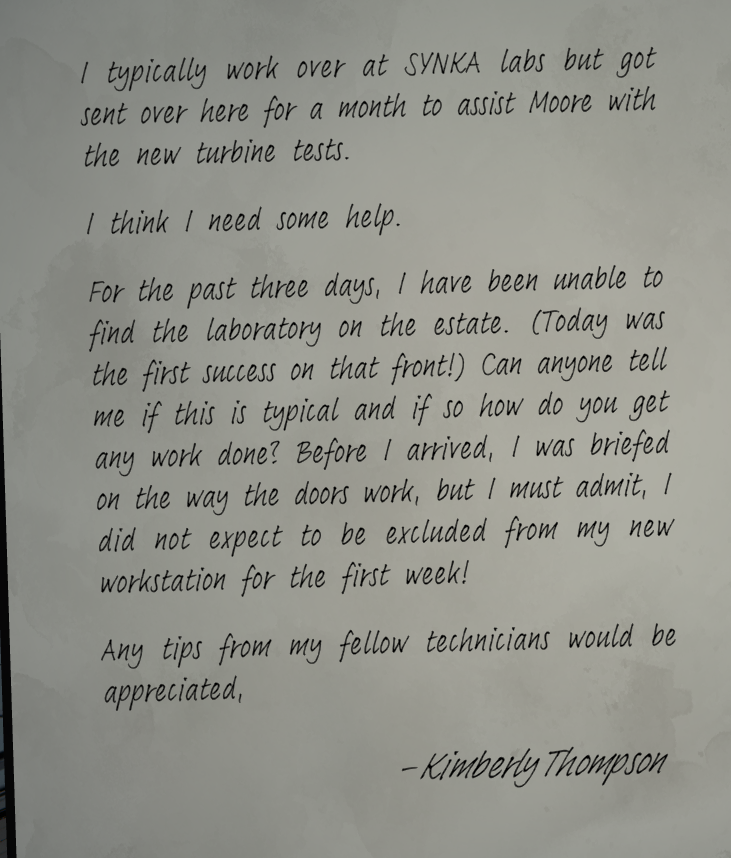 I typically work over at SYNKA labs but got
sent over here for a month to assist Moore with
the new turbine tests.
I think I need some help.
For the past three days, I have been unable to
find the laboratory on the estate. (Today was
the first success on that front!) Can anyone tell
me if this is typical and if so how do you get
any work done? Before I arrived, I was briefed
on the way the doors work, but I must admit, I
did not expect to be excluded from my new
workstation for the first week!
Any tips from my fellow technicians would be
appreciated,
–Kimberly Thompson